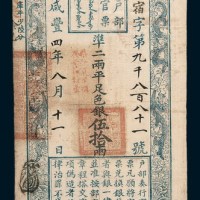 戶部
官票
宿字第九千八百八十一號
準二兩平足色銀伍拾兩
咸豐四年八月十一日
戶部奏行官
票凡願將官
票兌換銀錢
者與銀一律
並准按部定
章程搭交官
項偽造者依
律治罪不貸